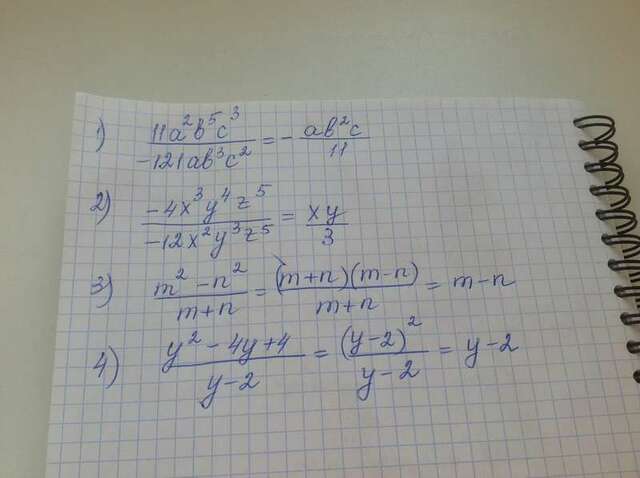 1) 11a²b⁵c³ / -121ab³c² = - ab²c / 11
2) -4x³y⁴z⁵ / -12x²y³z⁵ = xy / 3
3) m² - n² / m+n = (m+n)(m-n) / m+n = m-n
4) y² - 4y+4 / y-2 = (y-2)² / y-2 = y-2